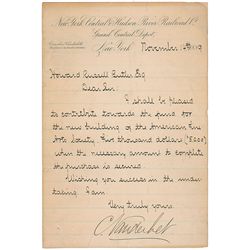 New York Central & Hudson River Railroad Co.
Grand Central Depot
New York November 1889
Howard Russell Butler Esq
Dear Sir:
I shall be pleased
to contribute towards the fund for
the new building of the American Fine
Arts Society, five thousand dollars ($5000)
when the necessary amount to complete
the purchase is secured.
Wishing you success in the under-
taking, I am.
Very truly yours,
C Vanderbilt